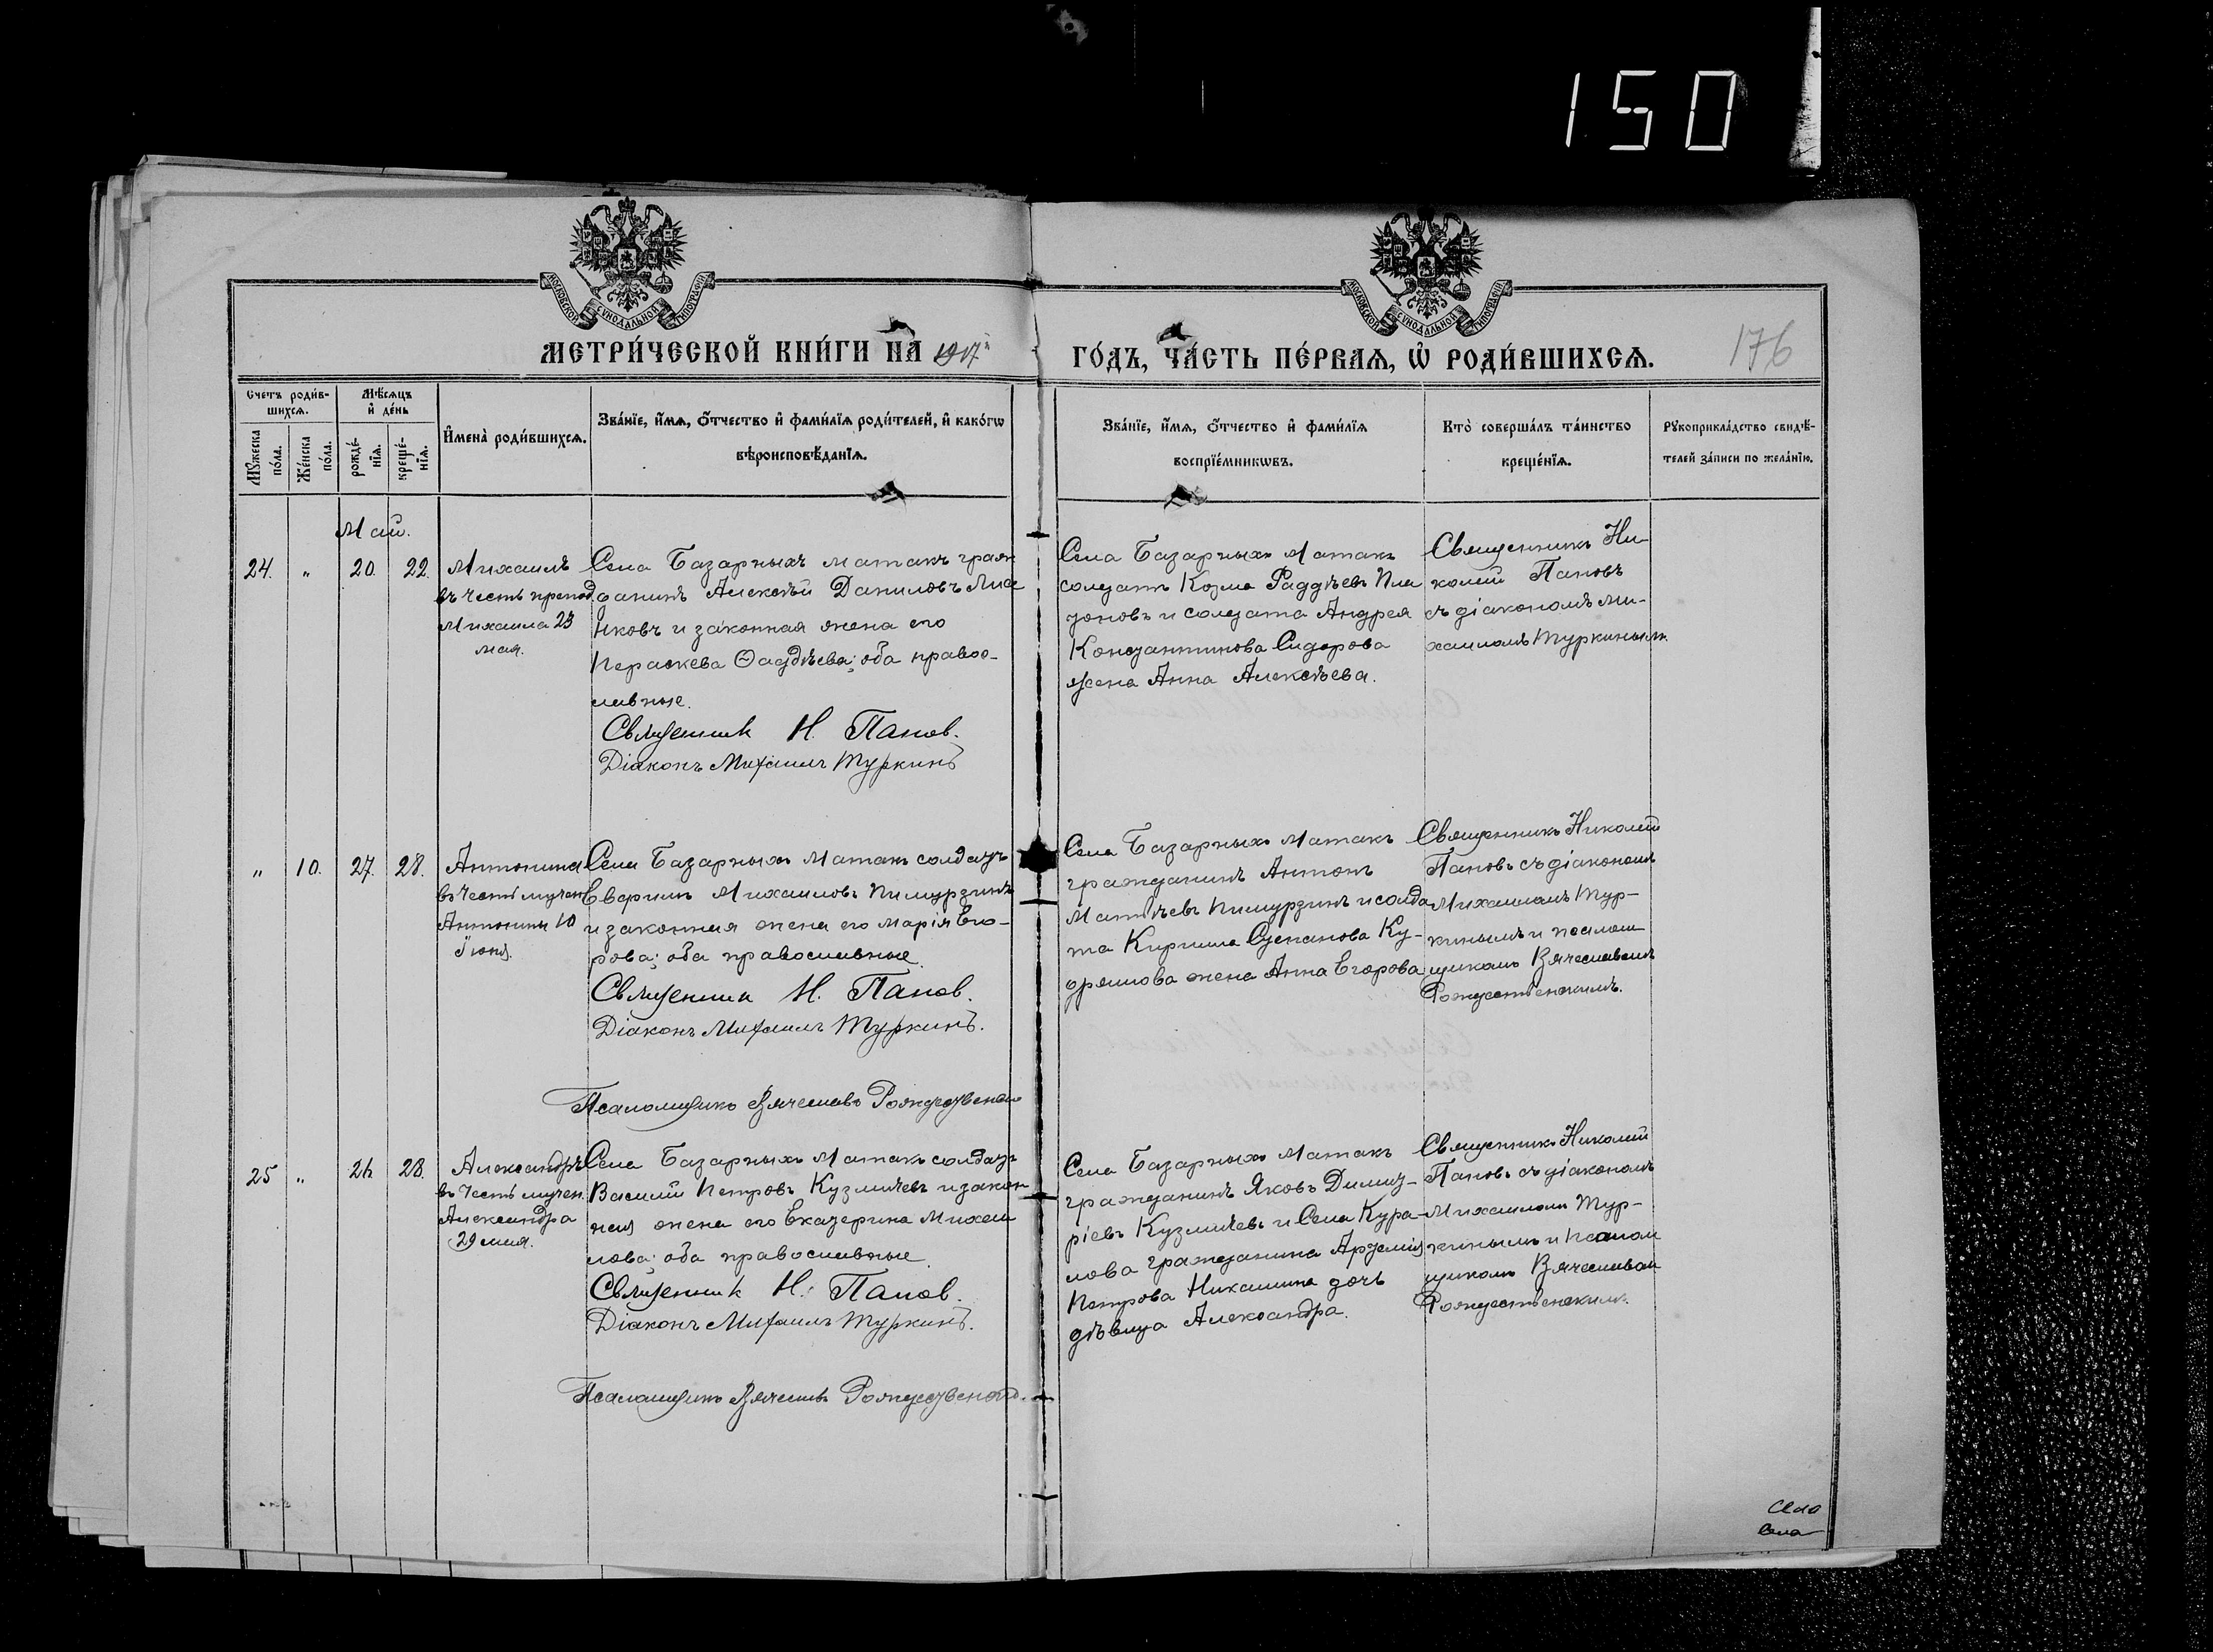 150
МОСКОВСКОЙ СѴНОДАЛЬНОЙ ТИПОГРАФІИ
МОСКОВСКОЙ СѴНОДАЛЬНОЙ ТИПОГРАФІИ
МЕТРИ́ЧЕСКОЙ КНИ́ГИ НА 1917й
ГО́ДЪ, ЧА́СТЬ ПЕ́РВАѦ, Ѡ҆ РОДИ́ВШИХСѦ.
176
Счетъ роди́в-
шихсѧ.
Мѣ́сѧцъ
и҆ де́нь
Мꙋ́жеска
по́ла.
Же́нска
по́ла.
рожде́-
нїѧ.
креще́-
нїѧ.
И҆мена̀ роди́вшихсѧ.
Зва́нїе, и҆́мѧ, ѻ҆́тчество и҆ фами́лїѧ роди́телей, и҆ како́гѡ
вѣроисповѣ́данїѧ.
Зва́нїе, и҆́мѧ, ѻ҆́тчество и҆ фами́лїѧ
воспрїе́мникѡвъ.
Кто̀ соверша́лъ та́инство
креще́нїѧ.
Рꙋкоприкла́дство свидѣ́-
телей за́писи по жела́нїю.
Май.
24. " 20. 22.
Михаилъ
въ честь препод.
Михаила 23
мая.
Села Базарныхъ Матакъ граж
данинъ Алексѣй Даниловъ
нковъ и законная жена его
Параскева Ѳаддѣева; оба правос-
лавные.
Священник Н. Панов.
Діаконъ Михаилъ Туркинъ
Села Базарныхъ Матакъ
солдатъ Козма Фаддѣевъ Пла
тоновъ и солдата Андрея
Константинова Сидорова
жена Анна Алексѣева.
Священникъ Ни-
колай Пановъ
съ діакономъ Ми-
хаиломъ Туркинымъ.
" 10. 27. 28.
Антонина
въ честь мучен
Антонины 10
Іюня.
Села Базарныхъ Матакъ солдатъ
Михаиловъ Пимурзинъ
и законная жена его Марія Его-
рова; оба православные.
Священник Н. Панов.
Діаконъ Михаилъ Туркинъ.
Псаломщикъ Вячеславъ Рождественскій
Села Базарныхъ Матакъ
гражданинъ Антонъ
Матвѣевъ Пимурзинъ и солда
та Кирилла Степанова Ку-
дряшова жена Анна Егорова
Священникъ Николай
Пановъ съ діакономъ
Михаиломъ Тур-
кинымъ и псалом
щикомъ Вячеславомъ
Рождественскимъ.
25 " 26. 28.
Александръ
въ честь мучен.
Александра
29 мая.
Села Базарныхъ Матакъ солдатъ
Василій Петровъ Кузмичевъ и закон
ная жена его Екатерина Михаи
лова; оба православные.
Священник Н. Панов.
Діаконъ Михаилъ Туркинъ.
Псаломщикъ Вячеславъ Рождественскій.
Села Базарныхъ Матакъ
гражданинъ Яковъ Димит-
ріевъ Кузмичевъ и Села Кура-
лова гражданина Артемія
Петрова Никашина дочь
дѣвица Александра.
Священникъ Николай
Пановъ съ діакономъ
Михаиломъ Тур-
кинымъ и псалом
щикомъ Вячеславом
Рождественскимъ.
Села
Села